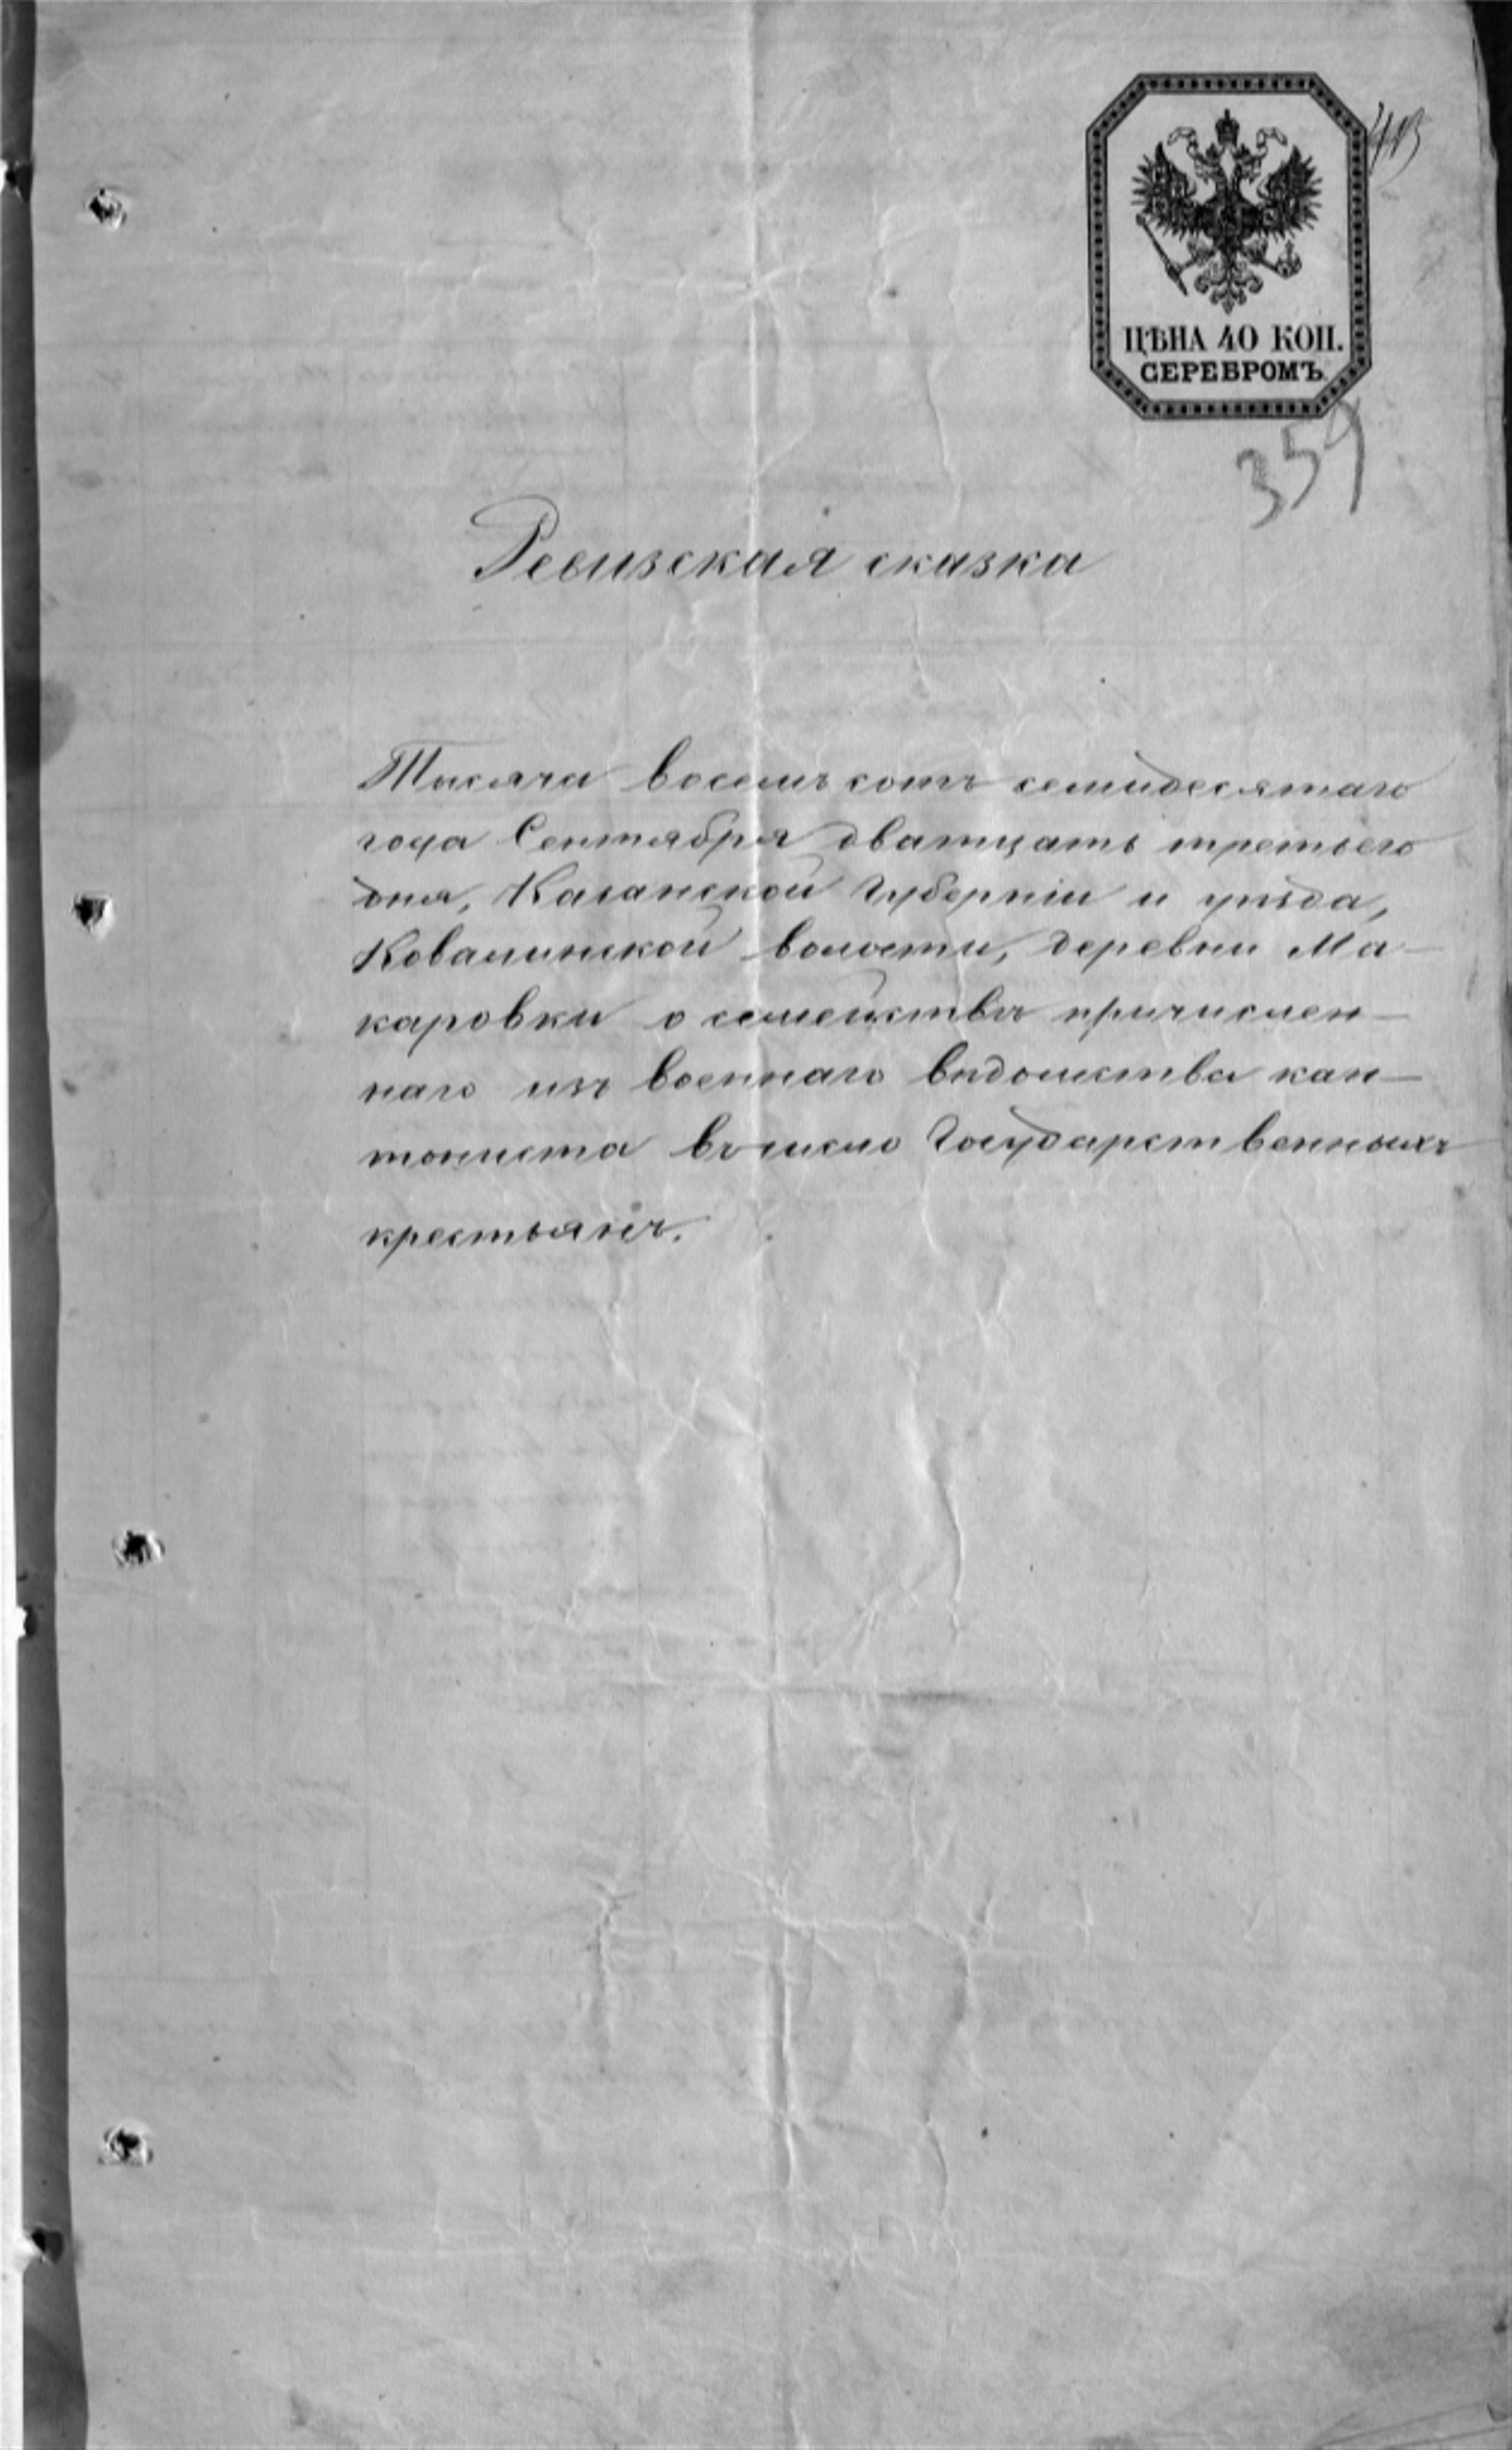 413
ЦѢНА 40 КОП.
СЕРЕБРОМЪ.
359
Ревизская сказка
Тысяча восемь сотъ семидесятаго
года Сентября дватцать третьего
дня, Казанской Губерніи и уѣзда,
Ковалинской волости, деревни Ма-
каровки о семействѣ причислен-
наго изъ военнаго вѣдомства кан-
тониста въ число Государственныхъ
крестьянъ.